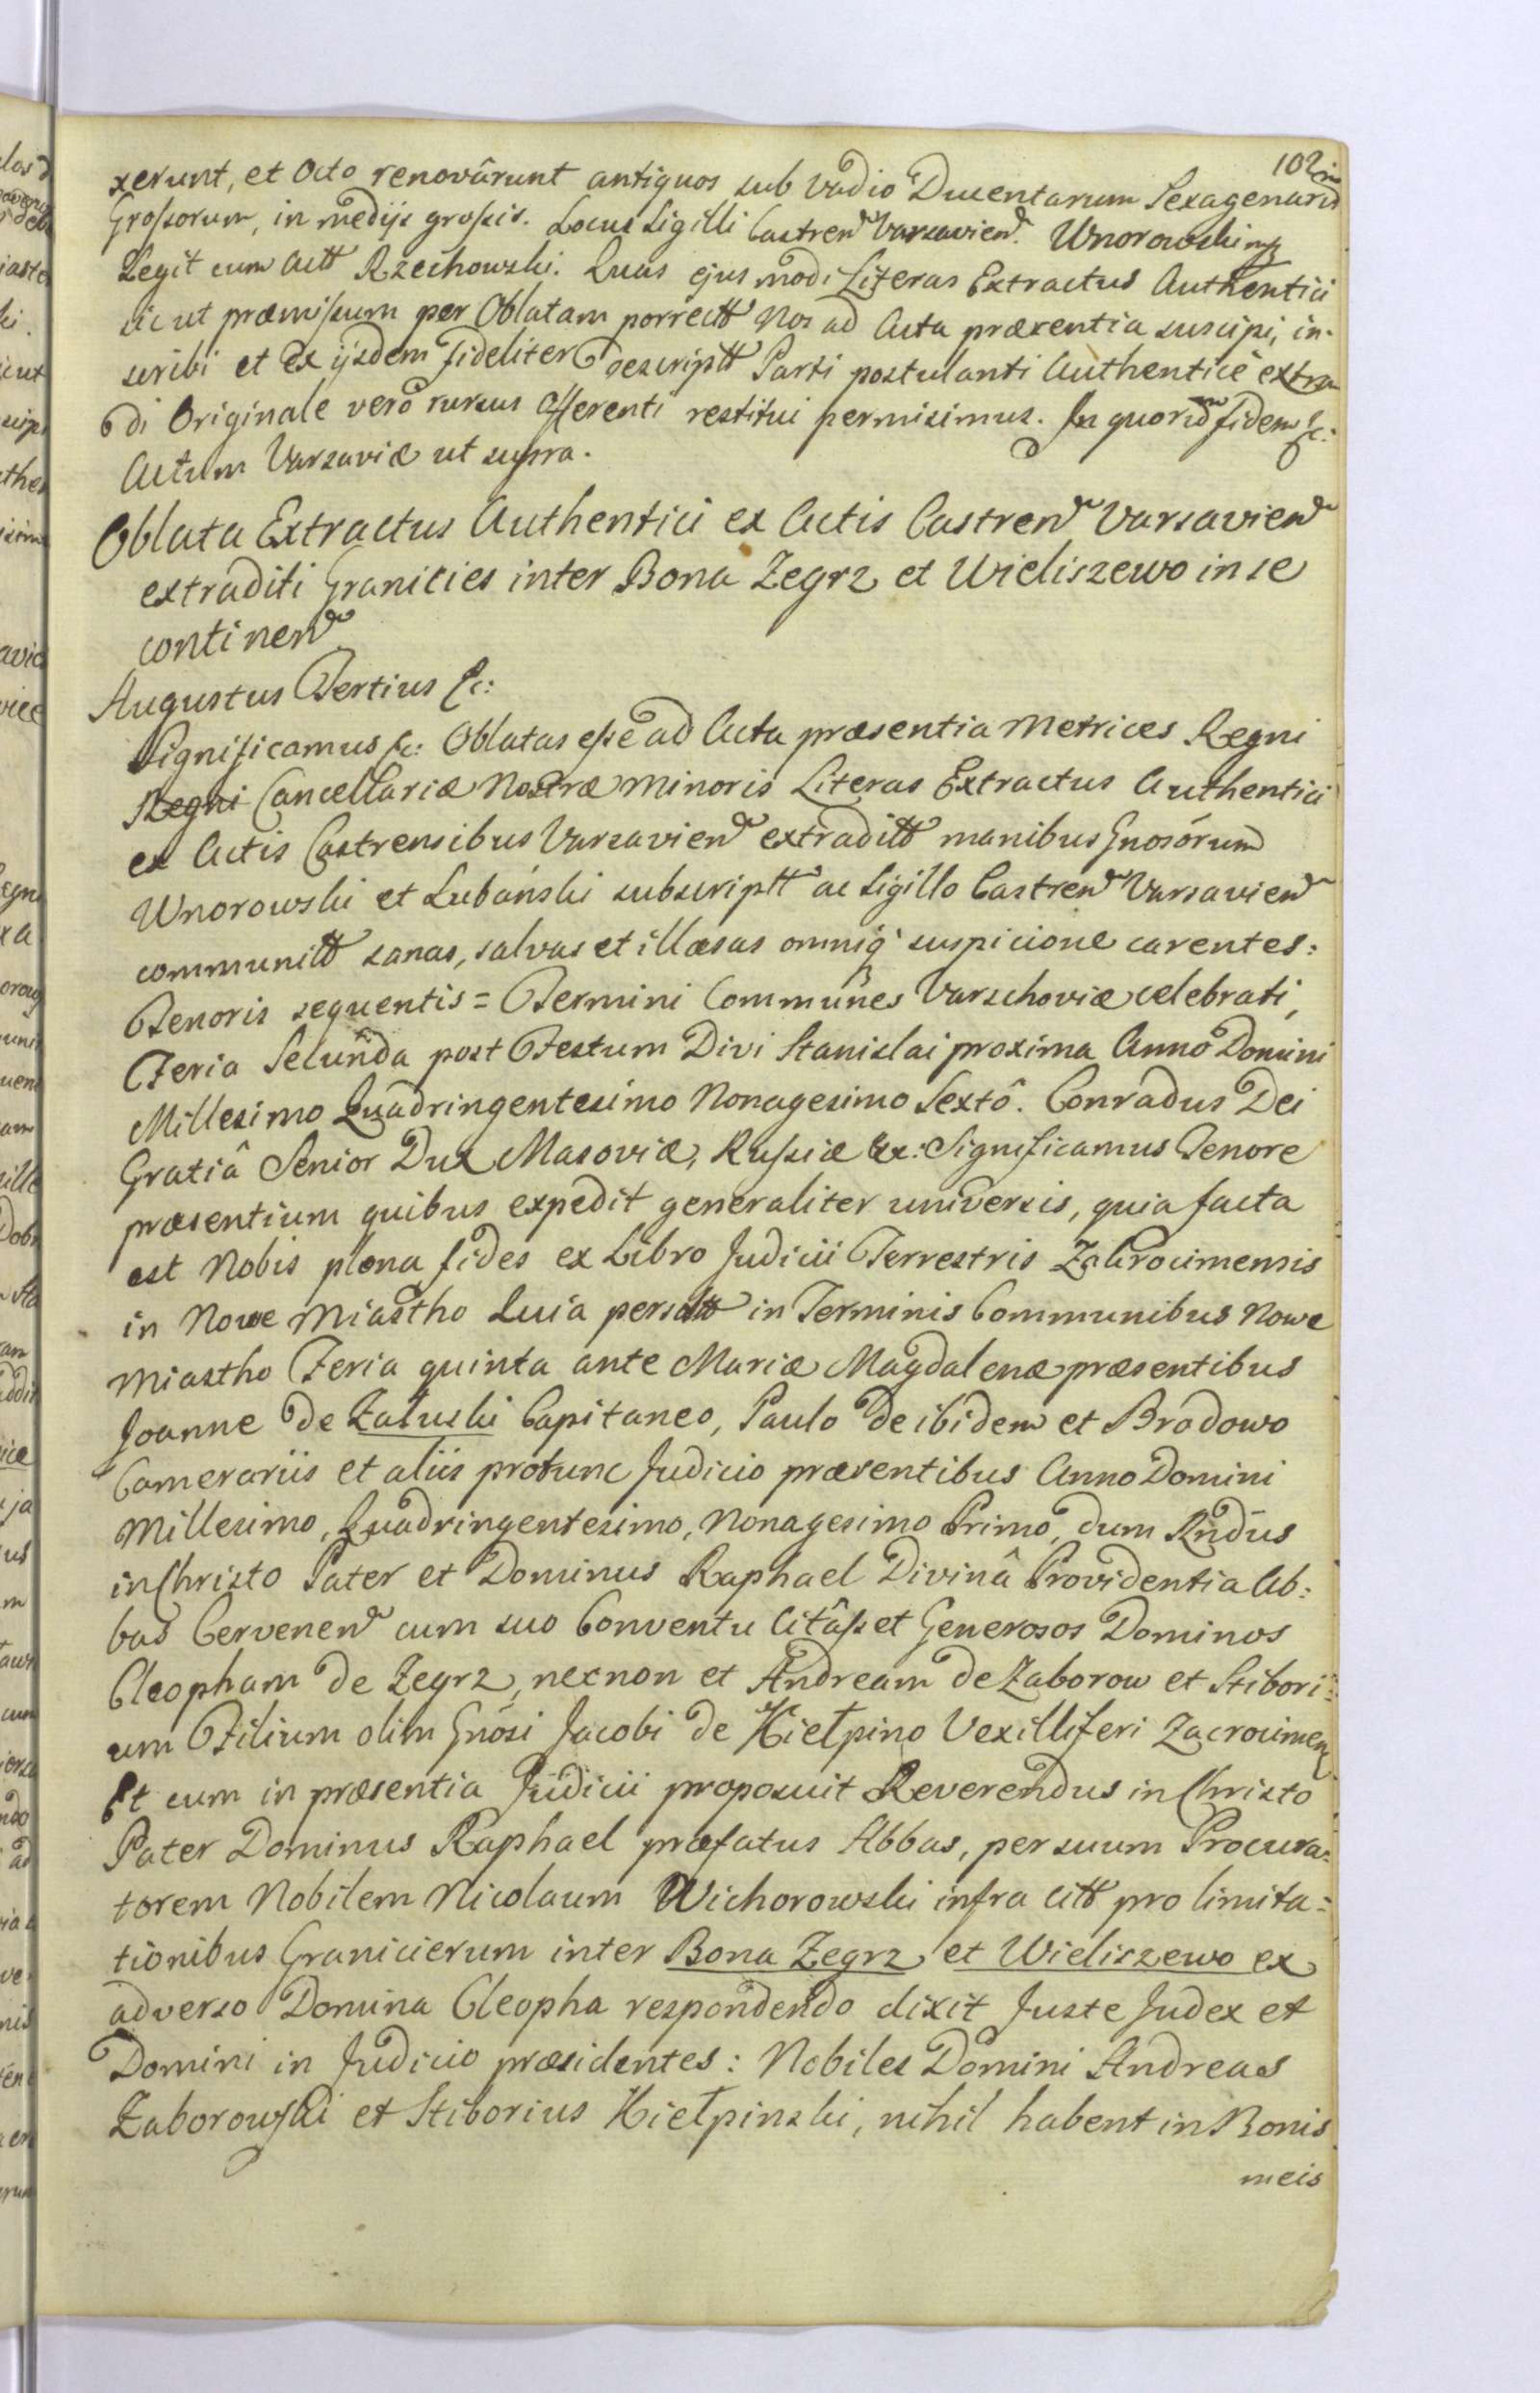 102
xerunt, et Octo renovârunt antiquos sub Vadio Ducentarum Sexagenarū
Grossorum, in medijs grossis. Locus Sigilli Castren Varsavien. Wnorowski mp
Legit cum Actt Rzechowski. Quas ejusmodi Literas Extractus Authentici
sicut præmissum per Oblatam porrectt Nos ad Acta præsentia suscipi, in-
scribi et ex ijsdem fideliter descriptt Parti postulanti Authenticè extra
di Originale verò rursus Offerenti restitui permisimus. In quorum fidem &c:
Actum Varsaviæ ut supra.
Oblata Extractus Authentici ex Actis Castren Varsavien
extraditi Granicies inter Bona Zegrz et Wieliszewo in se
continen
Augustus Tertius &c:
Significamus &c: Oblatas esse ad Acta præsentia Metrices Regni
Regni Cancellariæ Nostræ Minoris Literas Extractus Authentici
ex Actis Castrensibus Varsavien extraditt manibus Gnosórum
Wnorowski et Lubański subscriptt ac Sigillo Castren Varsavien
communitt sanas, salvas et illæsas omniq suspicione carentes:
Tenoris sequentis = Termini Communes Varschoviæ celebrati,
Feria Secunda post Festum Divi Stanislai proxima Anno Domini
Millesimo Quadringentesimo Nonagesimo Sextô. Conradus Dei
Gratiâ Senior Dux Masoviæ, Russiæ &c: Significamus Tenore
præsentium quibus expedit generaliter universis, quia facta
est Nobis plena fides ex Libro Judicii Terrestris Zakrocimensis
in Nowe Miastho Quia in Terminis Communibus Nowe
Miastho Feria quinta ante Mariæ Magdalenæ præsentibus
Joanne de Załuski Capitaneo, Paulo de ibidem et Brodowo
Camerariis et aliis protunc Judicio præsentibus Anno Domini
Millesimo, Quadringentesimo, Nonagesimo Primo, dum Rndus
in Christo Pater et Dominus Raphael Divinâ Providentia Ab:
bas Cervenen cum suo Conventu Citâss et Generosos Dominos
Cleopham de Zegrz, necnon et Andream de Zaborow et Stibori=
um Filium olim Gnósi Jacobi de Kiełpino Vexilliferi Zacrocimen
Et cum in præsentia Judicii proposuit Reverendus in Christo
Pater Dominus Raphael præfatus Abbas, per suum Procura=
torem Nobilem Nicolaum Wichorowski infra citt pro limita=
tionibus Granicierum inter Bona Zegrz et Wieliszewo ex
adverso Domina Cleopha respondendo dixit Juste Judex et
Domini in Judicio præsidentes: Nobiles Domini Andreas
Zaborowski et Stiborius Kiełpinski, nihil habent in Bonis
meis